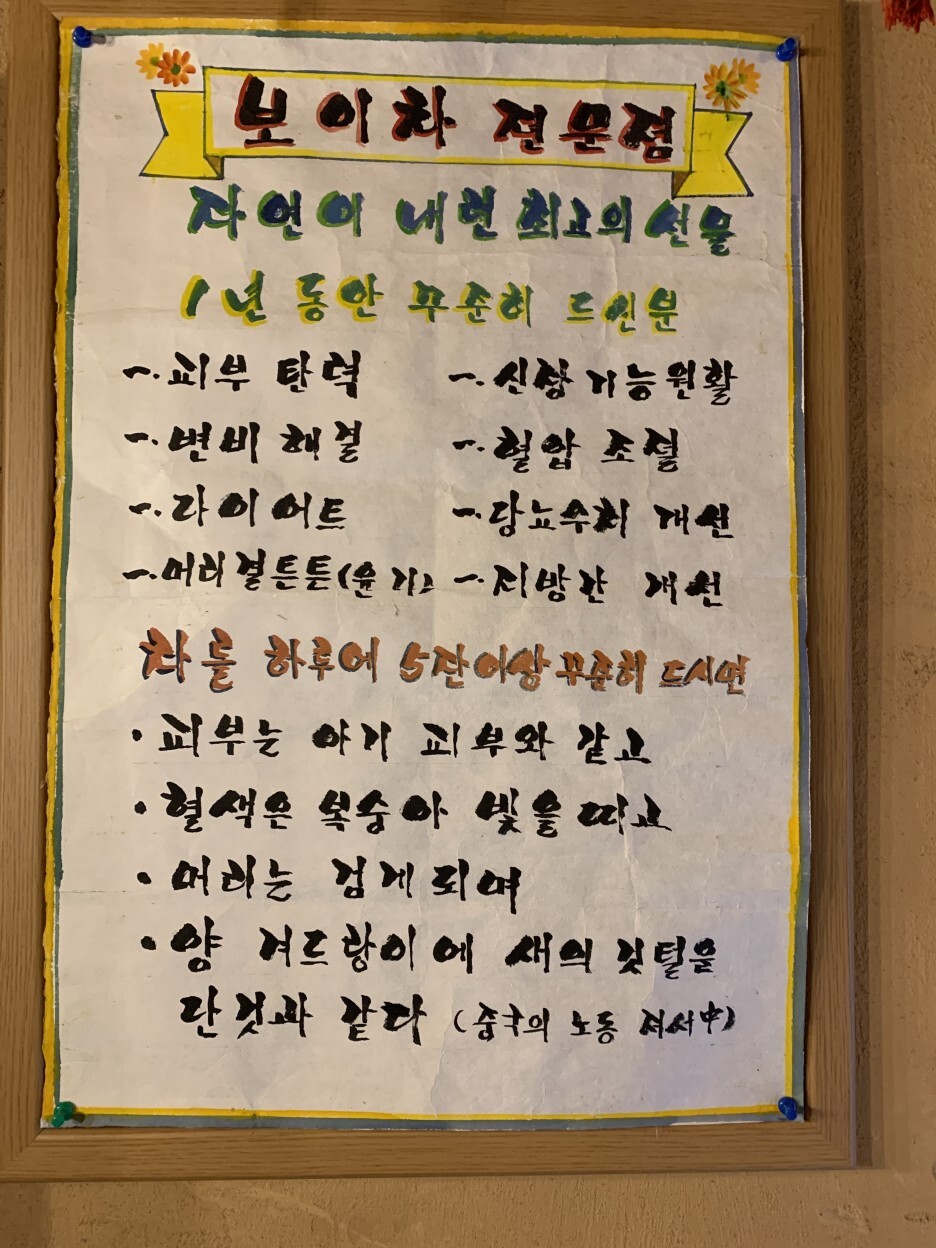 보이차 전문점
자연이 내련 최고의 선물
1년 동안 꾸준히 드신분
~. 피부 탄력
~. 신장 기능원활
~. 변비 해결
~. 혈압 조절
~. 다이어트
~. 당뇨수치 개선
~. 머리결튼튼(윤기)
~. 지방간 개선
차를 하루에 5잔이상 꾸준히 드시면
· 피부는 아기 피부와 같고
· 혈색은 복숭아 빛을 띠고
· 머리는 검게되며
· 양 겨드랑이에 새의 깃털을
단것과 같다 (중국의 노동 저서中)